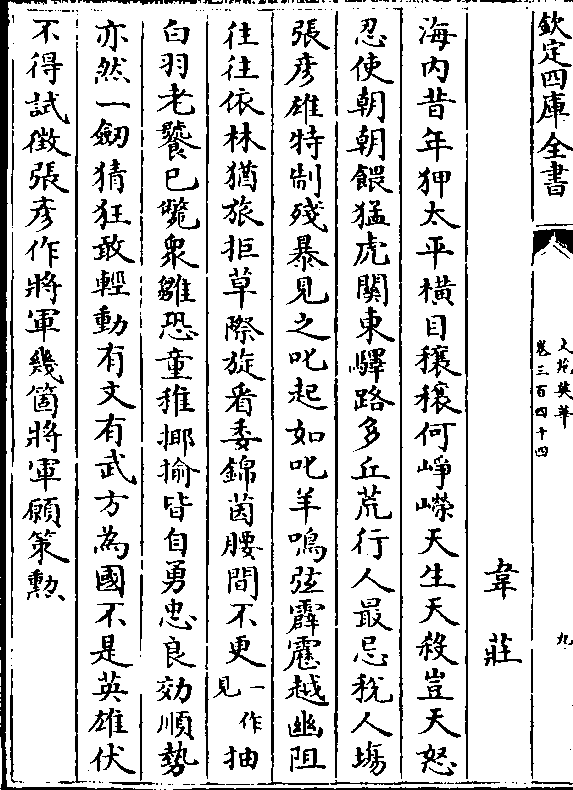 欽定四庫全書
文苑英華
卷三百四十四
九
韋莊
海内昔年狎太平橫目穰穰何崢嶸天生天殺豈天怒
忍使朝朝餵猛虎關東驛路多丘荒行人最忌稅人塲
張彥雄特制殘暴見之叱起如叱羊鳴弦霹靂越幽阻
往往依林猶旅拒草際旋看委錦茵腰間不更一作見抽
白羽老饕已斃衆雛恐童稚揶揄皆自勇忠良効順勢
亦然一劒猜狂敢輕動有文有武方為國不是英雄伏
不得試徴張彥作將軍幾箇將軍願策勲